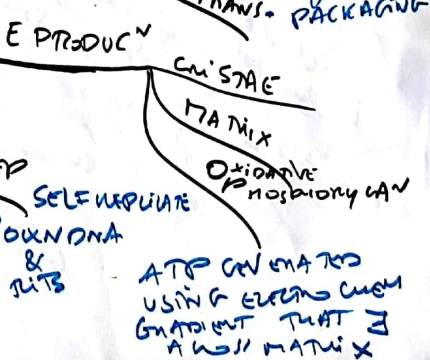 TRANS. PACKAGING
E PRODUCᴺ
CRISTAE
MATRIX
OXIDATIVE
PHOSPHORYLAN
P
SELF REPLICATE
OWN DNA
&
RIB
ATP GENERATED
USING ELECTROCHEM
GRADIENT THAT ∃
ACROSS MATRIX